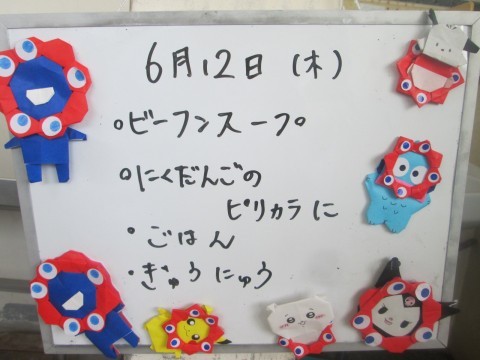 6月12日(木)
・ビーフンスープ
・にくだんごの
ピリカラに
・ごはん
・ぎゅうにゅう